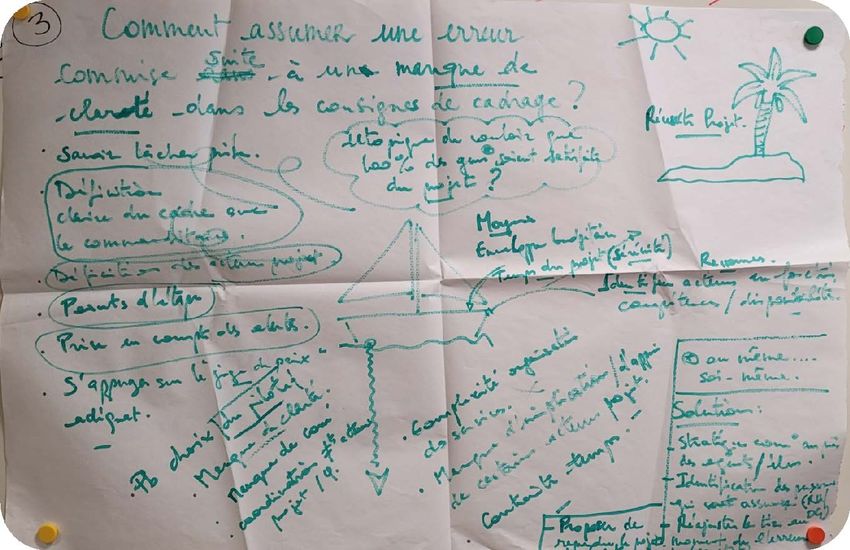 3
Comment assumer une erreur
Commise suite à un manque de
clarté dans les consignes de cadrage ?
Utopique de vouloir que
100% des gens soient satisfaits
du projet ?
Réussite Projet.
. Savoir lâcher prise.
. Définition
claire du cadre que
le commanditaire.
. Définition des acteurs projet.
. Points d'étape
. Prise en compte des alertes.
. S'appuyer sur le
adéquat.
Moyens
Enveloppe budgétaire
Temps du projet (sérénité)
Ressources.
Identifier acteurs en fonction
compétences / disponibilités.
. Pb choix du pilote
Manque de clarté.
Manque de
coordination acteurs
projet /
. Complexité organisation
des services.
. Manque d'implication / d'appui
de certains acteurs projet.
Contrainte temps.
ou même....
soi-même.
Solutions :
- Stratégie com°
des agents / élus.
- Identification des
qui sont
- Réajuster le
moment de l'erreur
- Proposer de
reprendre le projet